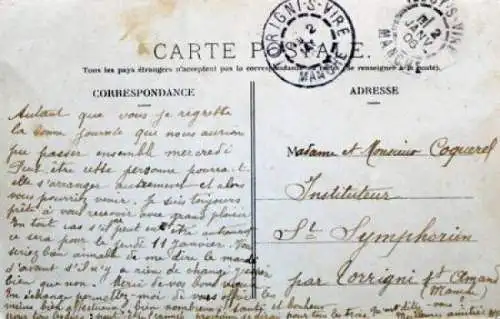 TORIGNI-S-VIRE
2
MANCHE
TORIGNI-S-VIRE
2
JANV.
06
MANCHE
CARTE POSTALE.
Tous les pays étrangers n'acceptent pas la correspondance au recto (se renseigner à la poste).
CORRESPONDANCE
ADRESSE
Autant que vous je regrette
la bonne journée que nous aurions
pu passer ensemble mercredi
Peut être cette personne pourra-t-
elle s'arranger autrement et alors
vous pourriez venir. Je suis toujours
prête à vous recevoir avec grand plaisir
En tout cas s'il peut en être autrement
ce sera pour le jeudi 11 janvier. Vous
seriez bien aimable de me dire le mardi
d'avant s'il n'y a rien de changé
bien que non. Merci de vos bons
En échange permettez-moi de vous offrir
Madame et Monsieur Coquerel
Instituteur
St Symphorien
par Torrigni
Manche